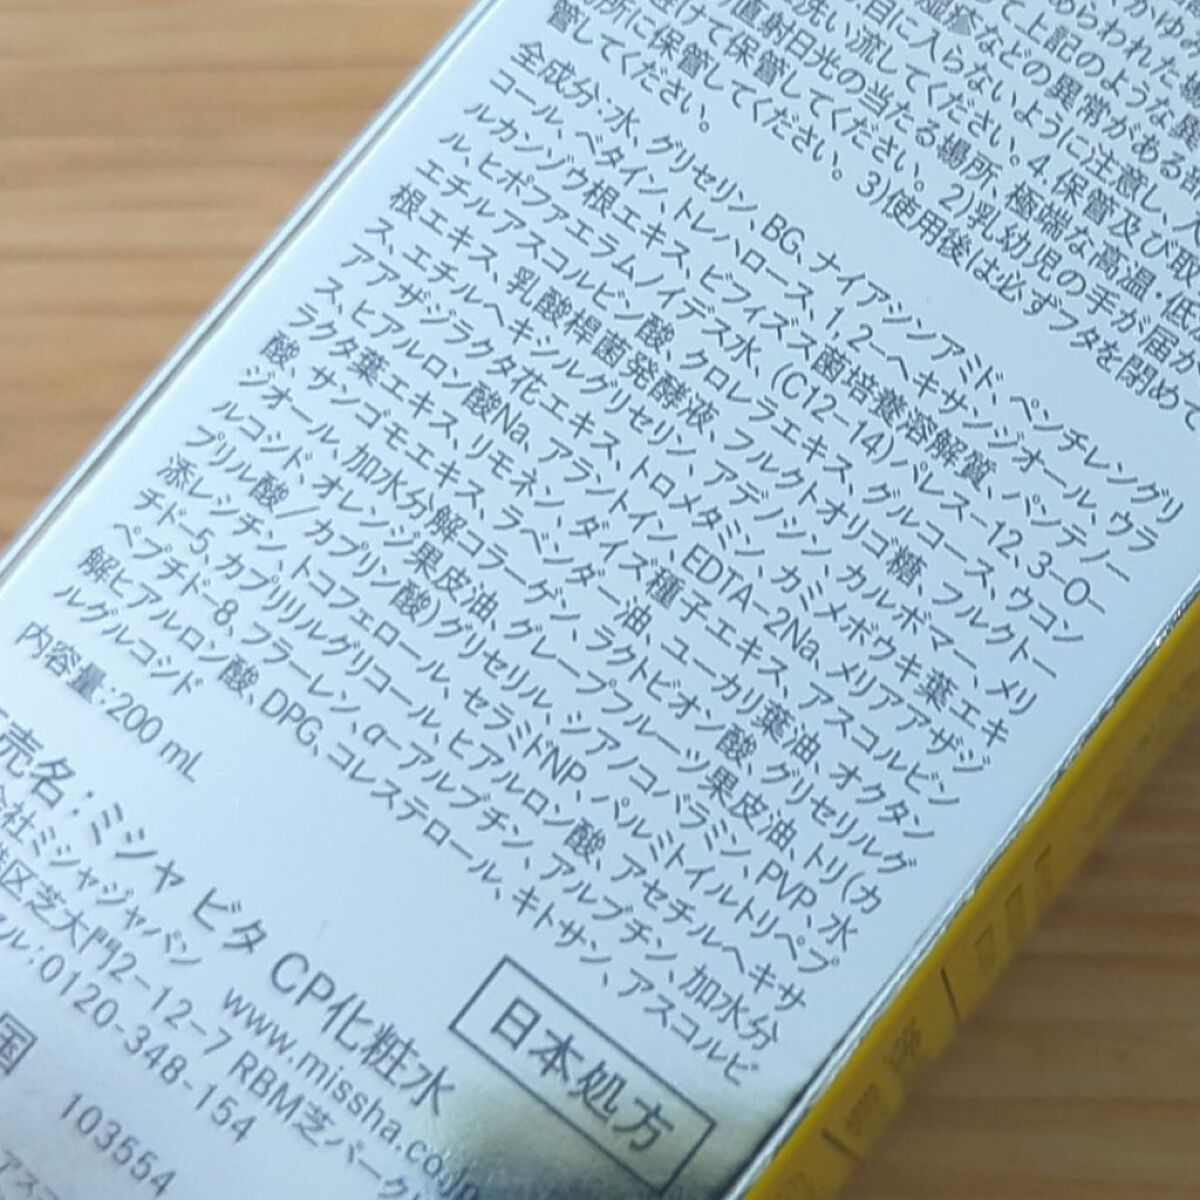 かゆみ
湿疹などの異常がある部
って上記のような異
目に入らないように注意し、入
洗い流してください。4.保管及び取
直射日光の当たる場所、極端な高温・低
避けて保管してください。2)乳幼児の手が届か
場所に保管してください。3)使用後は必ずフタを閉めて
管してください。
全成分:水、グリセリン、BG、ナイアシンアミド、ペンチレングリ
コール、ベタイン、トレハロース、1,2-ヘキサンジオール、ウラ
ルカンゾウ根エキス、ビフィズス菌培養溶解質、パンテノー
ル、ヒポファエラムノイデス水、(C12-14)パレス-12、3-O-
エチルアスコルビン酸、クロレラエキス、グルコース、ウコン
根エキス、乳酸桿菌発酵液、フルクトオリゴ糖、フルクトー
ス、エチルヘキシルグリセリン、アデノシン、カルボマー、メリ
アアザジラクタ花エキス、トロメタミン、カミメボウキ葉エキ
ス、ヒアルロン酸Na、アラントイン、EDTA-2Na、メリアアザジ
ラクタ葉エキス、リモネン、ダイズ種子エキス、アスコルビン
酸、サンゴモエキス、ラベンダー油、ユーカリ葉油、オクタン
ジオール、加水分解コラーゲン、ラクトビオン酸、グリセリルグ
ルコシド、オレンジ果皮油、グレープフルーツ果皮油、トリ(カ
プリル酸/カプリン酸)グリセリル、シアノコバラミン、PVP、水
添レシチン、トコフェロール、セラミドNP、パルミトイルトリペプ
チド-5、カプリリルグリコール、ヒアルロン酸、アセチルヘキサ
ペプチド-8、フラーレン、α-アルブチン、アルブチン、加水分
解ヒアルロン酸、DPG、コレステロール、キトサン、アスコルビ
ルグルコシド
内容量:200 mL
売名:ミシャ ビタ CP化粧水
会社ミシャジャパン www.missha.co.jp
区芝大門2-12-7 RBM芝パーク
ル:0120-348-154
国
日本処方
103554